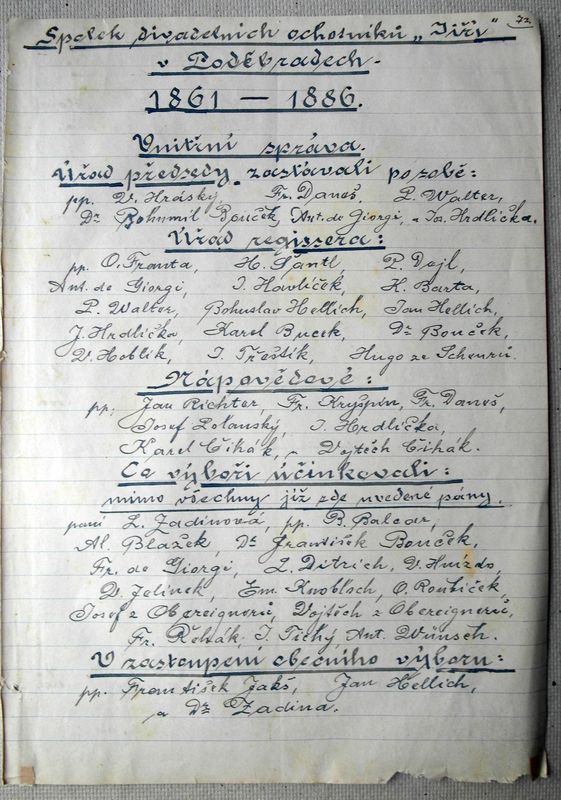 72.
Spolek divadelních ochotníků „Jiří"
v Poděbradech.
1861 — 1886.
Vnitřní správa.
Úřad předsedy zastávali po sobě:
pp. V. Hráský, Fr. Daneš, P. Walter,
Dr Bohumil Bouček, Ant. de Giorgi, a Ig. Hrdlička.
Úřad regissera:
pp. O. Franta, H. Šantl P. Dejl,
Ant. de Giorgi, I. Havlíček, K. Barta,
P. Walter, Bohuslav Hellich, Jan Hellich,
J. Hrdlička, Karel Bucek, Dr Bouček,
V. Hoblík, I. Třeštík, Hugo ze Scheurů.
Nápovědové:
pp; Jan Richter, Fr. Kryšpín, Fr. Daneš,
Josef Polanský, I. Hrdlička,
Karel Čihák, a Vojtěch Čihák.
Co výboři účinkovali:
mimo všechny již zde uvedené pány.
paní L. Zadinová, pp. B. Balcar,
Al. Blažek, Dr František Bouček,
Fr. de Giorgi, L. Ditrich, V. Hnízdo,
D. Jelinek, Em. Knobloch, O. Roubíček,
Josef z Obereignerů, Vojtěch z Obereignerů,
Fr. Řehák, I. Tichý, Ant. Wünsch.
V zastoupení obecního výboru:
pp. František Jakš, Jan Hellich,
a Dr Zadina.